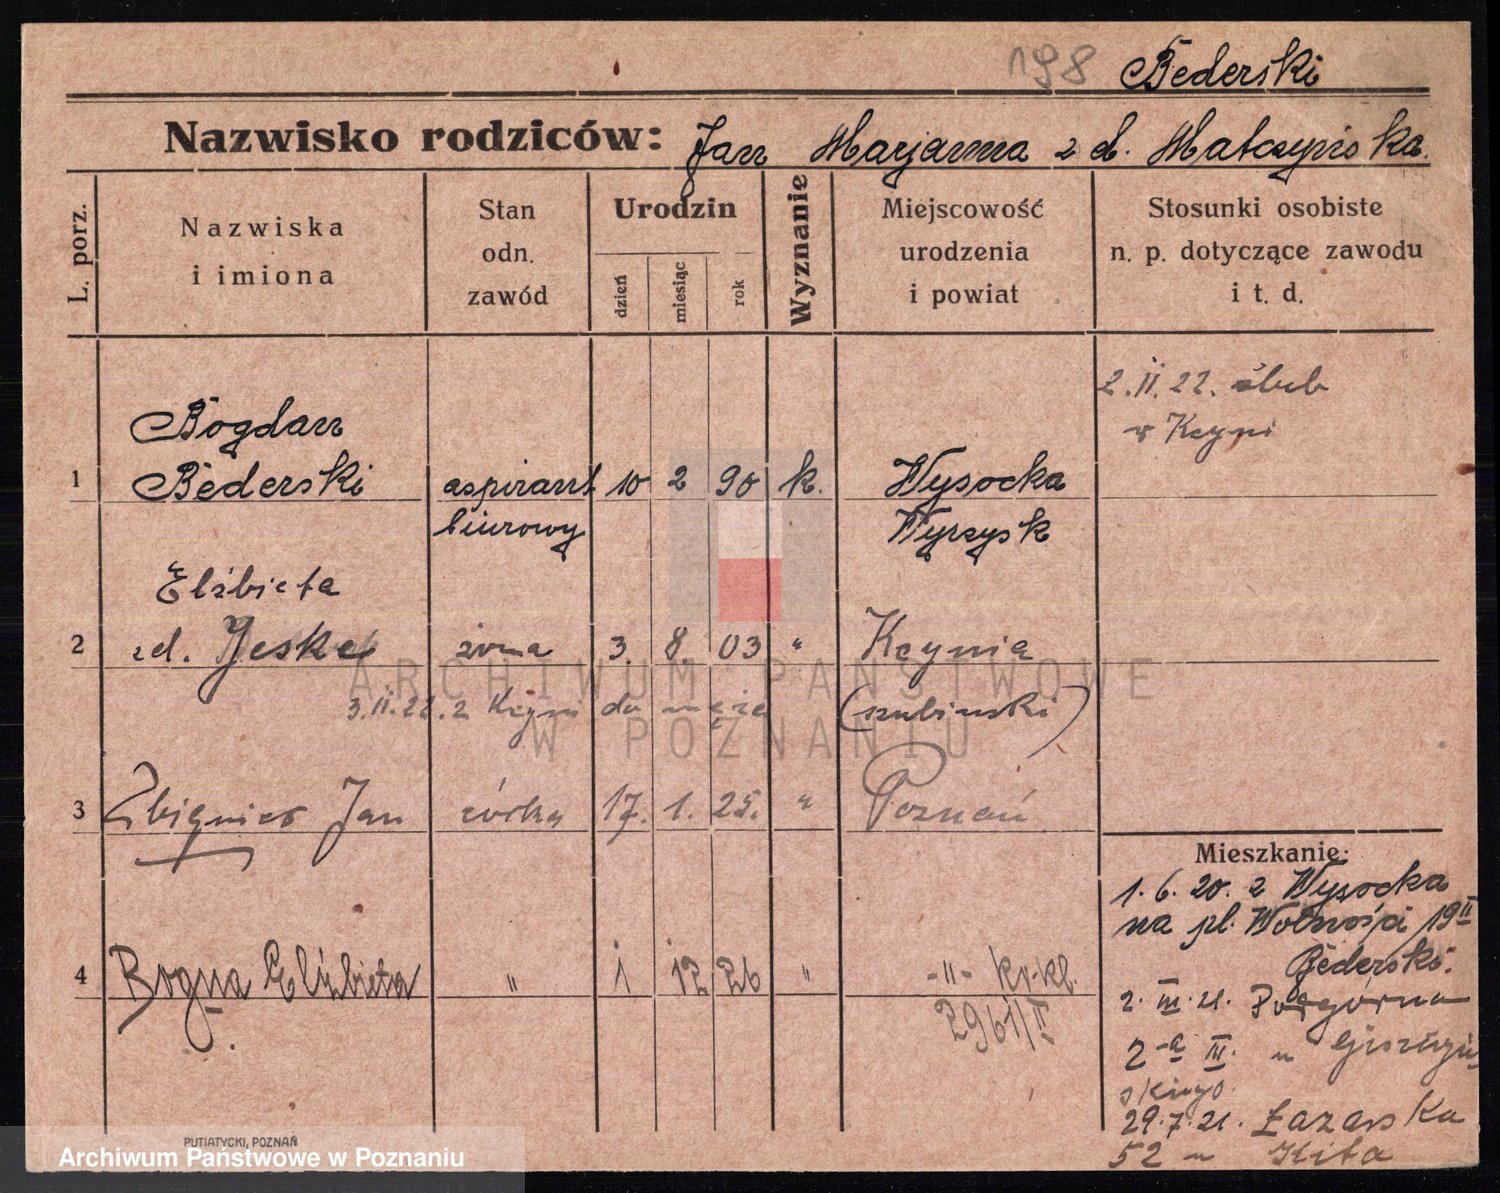 198 Bederski
Nazwisko rodziców: Jan Marjanna z d. Matczyńska
L. porz.
Nazwiska
i imiona
Stan
odn.
zawód
Urodzin
dzień
miesiąc
rok
Wyznanie
Miejscowość
urodzenia
i powiat
Stosunki osobiste
n. p. dotyczące zawodu
i t. d.
2.II.22. ślub
w Kcyni
Bogdan
1 Bederski aspirant 10 2 90 k. Wysocka
biurowy Wyrzysk
Elżbieta
2 zd. Jeske żona 3. 8. 03 " Kcynia
3.II.22. z Kcyni do męża (szubiński)
3 Zbigniew Jan córka 17. 1. 25. " Poznań
4 Bogna Elżbieta " 1 12 26 " -"- kr.kl.
2961/II
Mieszkanie:
1.6.20. z Wysocka
na pl. Wolności 19 II
Bederski.
2.III.21. Podgórna
2-a III. u
skiego
29.7.21. Łazarska
52 u Kita
PUTIATYCKI, POZNAŃ
ARCHIWUM PAŃSTWOWE
W POZNANIU
Archiwum Państwowe w Poznaniu